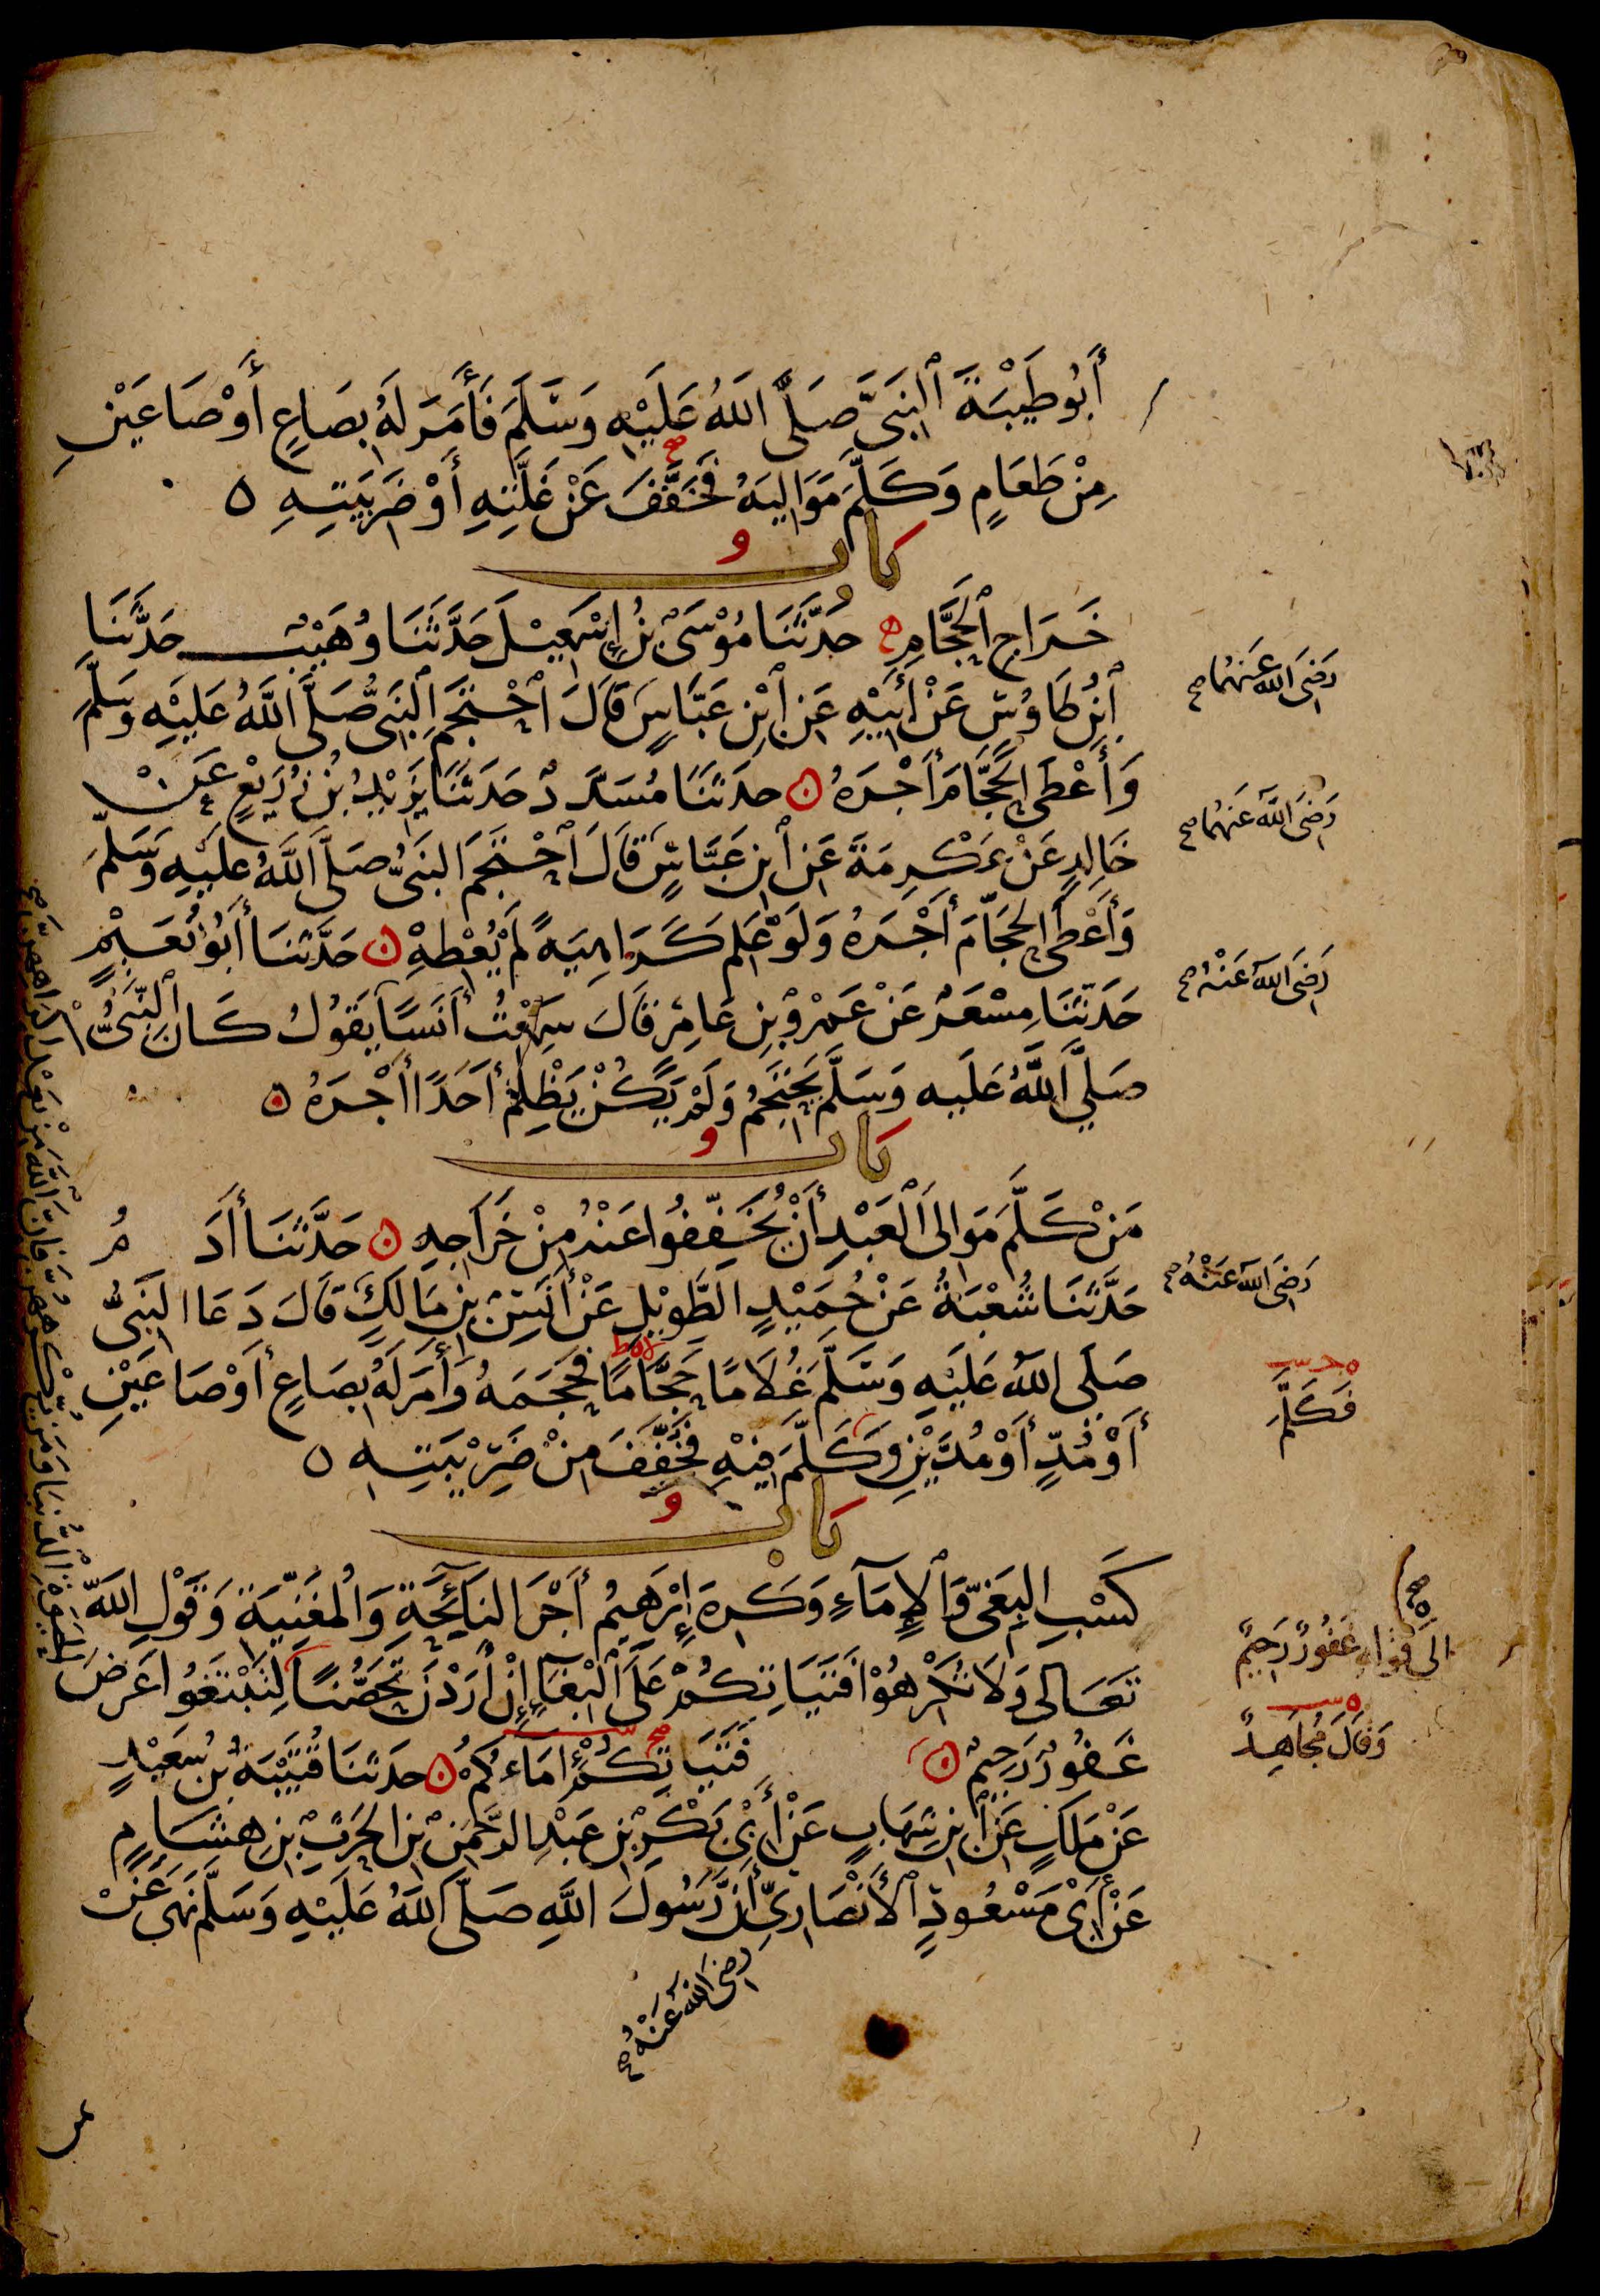 أَبُو طَيْبَةَ ٱلنَّبِىَّ صَلَّى اللَّهُ عَلَيْهِ وَسَلَّمَ فَأَمَرَ لَهُ بِصَاعٍ أَوْ صَاعَيْنِ
مِنْ طَعَامٍ وَكَلَّمَ مَوَالِيَهُ فَخَفَّفَ عَنْ غَلَّتِهِ أَوْ ضَرِيبَتِهِ ٥
بَابُ
خَرَاجِ ٱلْحَجَّامِ حَدَّثَنَا مُوْسَىٰ بْنُ إِسْمَعِيْلَ حَدَّثَنَا وُهَيْبٌ حَدَّثَنَا
ٱبْنُ طَاوُسٍ عَنْ أَبِيْهِ عَنِ ٱبْنِ عَبَّاسٍ قَالَ ٱحْتَجَمَ ٱلنَّبِىُّ صَلَّى اللَّهُ عَلَيْهِ وَسَلَّمَ
رَضِىَ اللَّهُ عَنْهُمَا صح
وَأَعْطَى الْحَجَّامَ أَجْرَهُ حَدَّثَنَا مُسَدَّدٌ حَدَّثَنَا يَزِيْدُ بْنُ زُرَيْعٍ عَنْ
خَالِدٍ عَنْ عِكْرِمَةَ عَنِ ٱبْنِ عَبَّاسٍ قَالَ ٱحْتَجَمَ النَّبِىُّ صَلَّى اللَّهُ عَلَيْهِ وَسَلَّمَ
رَضِىَ اللَّهُ عَنْهُمَا صح
وَأَعْطَى الْحَجَّامَ أَجْرَهُ وَلَوْ عَلِمَ كَرَاهِيَةً لَمْ يُعْطِهْ حَدَّثَنَا أَبُو نُعَيْمٍ
حَدَّثَنَا مِسْعَرٌ عَنْ عَمْرِو بْنِ عَامِرٍ قَالَ سَمِعْتُ أَنَسًا يَقُولُ كَانَ ٱلنَّبِىُّ
رَضِىَ اللَّهُ عَنْهُ صح
صَلَّى اللَّهُ عَلَيْهِ وَسَلَّمَ يَحْتَجِمُ وَلَمْ يَكُنْ يَظْلِمُ أَحَدًا أَجْرَهُ ٥
بَابُ
مَنْ كَلَّمَ مَوَالِىَ ٱلْعَبْدِ أَنْ يُخَفِّفُوا عَنْهُ مِنْ خَرَاجِهِ حَدَّثَنَا أَدَمُ
حَدَّثَنَا شُعْبَةُ عَنْ حُمَيْدٍ الطَّوِيْلِ عَنْ أَنَسِ بْنِ مَالِكٍ قَالَ دَعَا النَّبِىُّ
رَضِىَ اللَّهُ عَنْهُ صح
صَلَّى اللَّهُ عَلَيْهِ وَسَلَّمَ غُلَامًا حَجَّامًا فَحَجَمَهُ وَأَمَرَ لَهُ بِصَاعٍ أَوْ صَاعَيْنِ
أَوْ مُدٍّ أَوْ مُدَّيْنِ وَكَلَّمَ فِيْهِ فَخُفِّفَ مِنْ ضَرِيْبَتِهِ ٥
فَكَلَّمَ
بَابُ
كَسْبِ الْبَغِىِّ وَٱلْإِمَآءِ وَكَرِهَ إِبْرَهِيمُ أَجْرَ النَّائِحَةِ وَالْمُغَنِّيَةِ وَقَوْلِ اللَّهِ
تَعَالَى وَلَا تُكْرِهُوْا فَتَيَاتِكُمْ عَلَى ٱلْبِغَآءِ إِنْ أَرَدْنَ تَحَصُّنًا لِتَبْتَغُوا عَرَضَ
الى قوله غَفُورٌ رَحِيمٌ
غَفُورٌ رَحِيمٌ فَتَيَاتِكُمْ إِمَاءَكُمْ حَدَّثَنَا قُتَيْبَةُ بْنُ سَعِيْدٍ
وَقَالَ مُجَاهِدٌ
عَنْ مَلِكٍ عَنِ ٱبْنِ شِهَابٍ عَنْ أَبِىْ بَكْرِ بْنِ عَبْدِ الرَّحْمَنِ بْنِ الْحَرِثِ بْنِ هِشَامٍ
عَنْ أَبِىْ مَسْعُودٍ ٱلْأَنْصَارِىِّ أَنَّ رَسُولَ اللَّهِ صَلَّى اللَّهُ عَلَيْهِ وَسَلَّمَ نَهَى عَنْ
رَضِىَ اللَّهُ عَنْهُ صح
الْحَيَوةِ الدُّنْيَا وَمَنْ يُكْرِهْهُنَّ فَإِنَّ اللَّهَ مِنْ بَعْدِ إِكْرَاهِهِنَّ